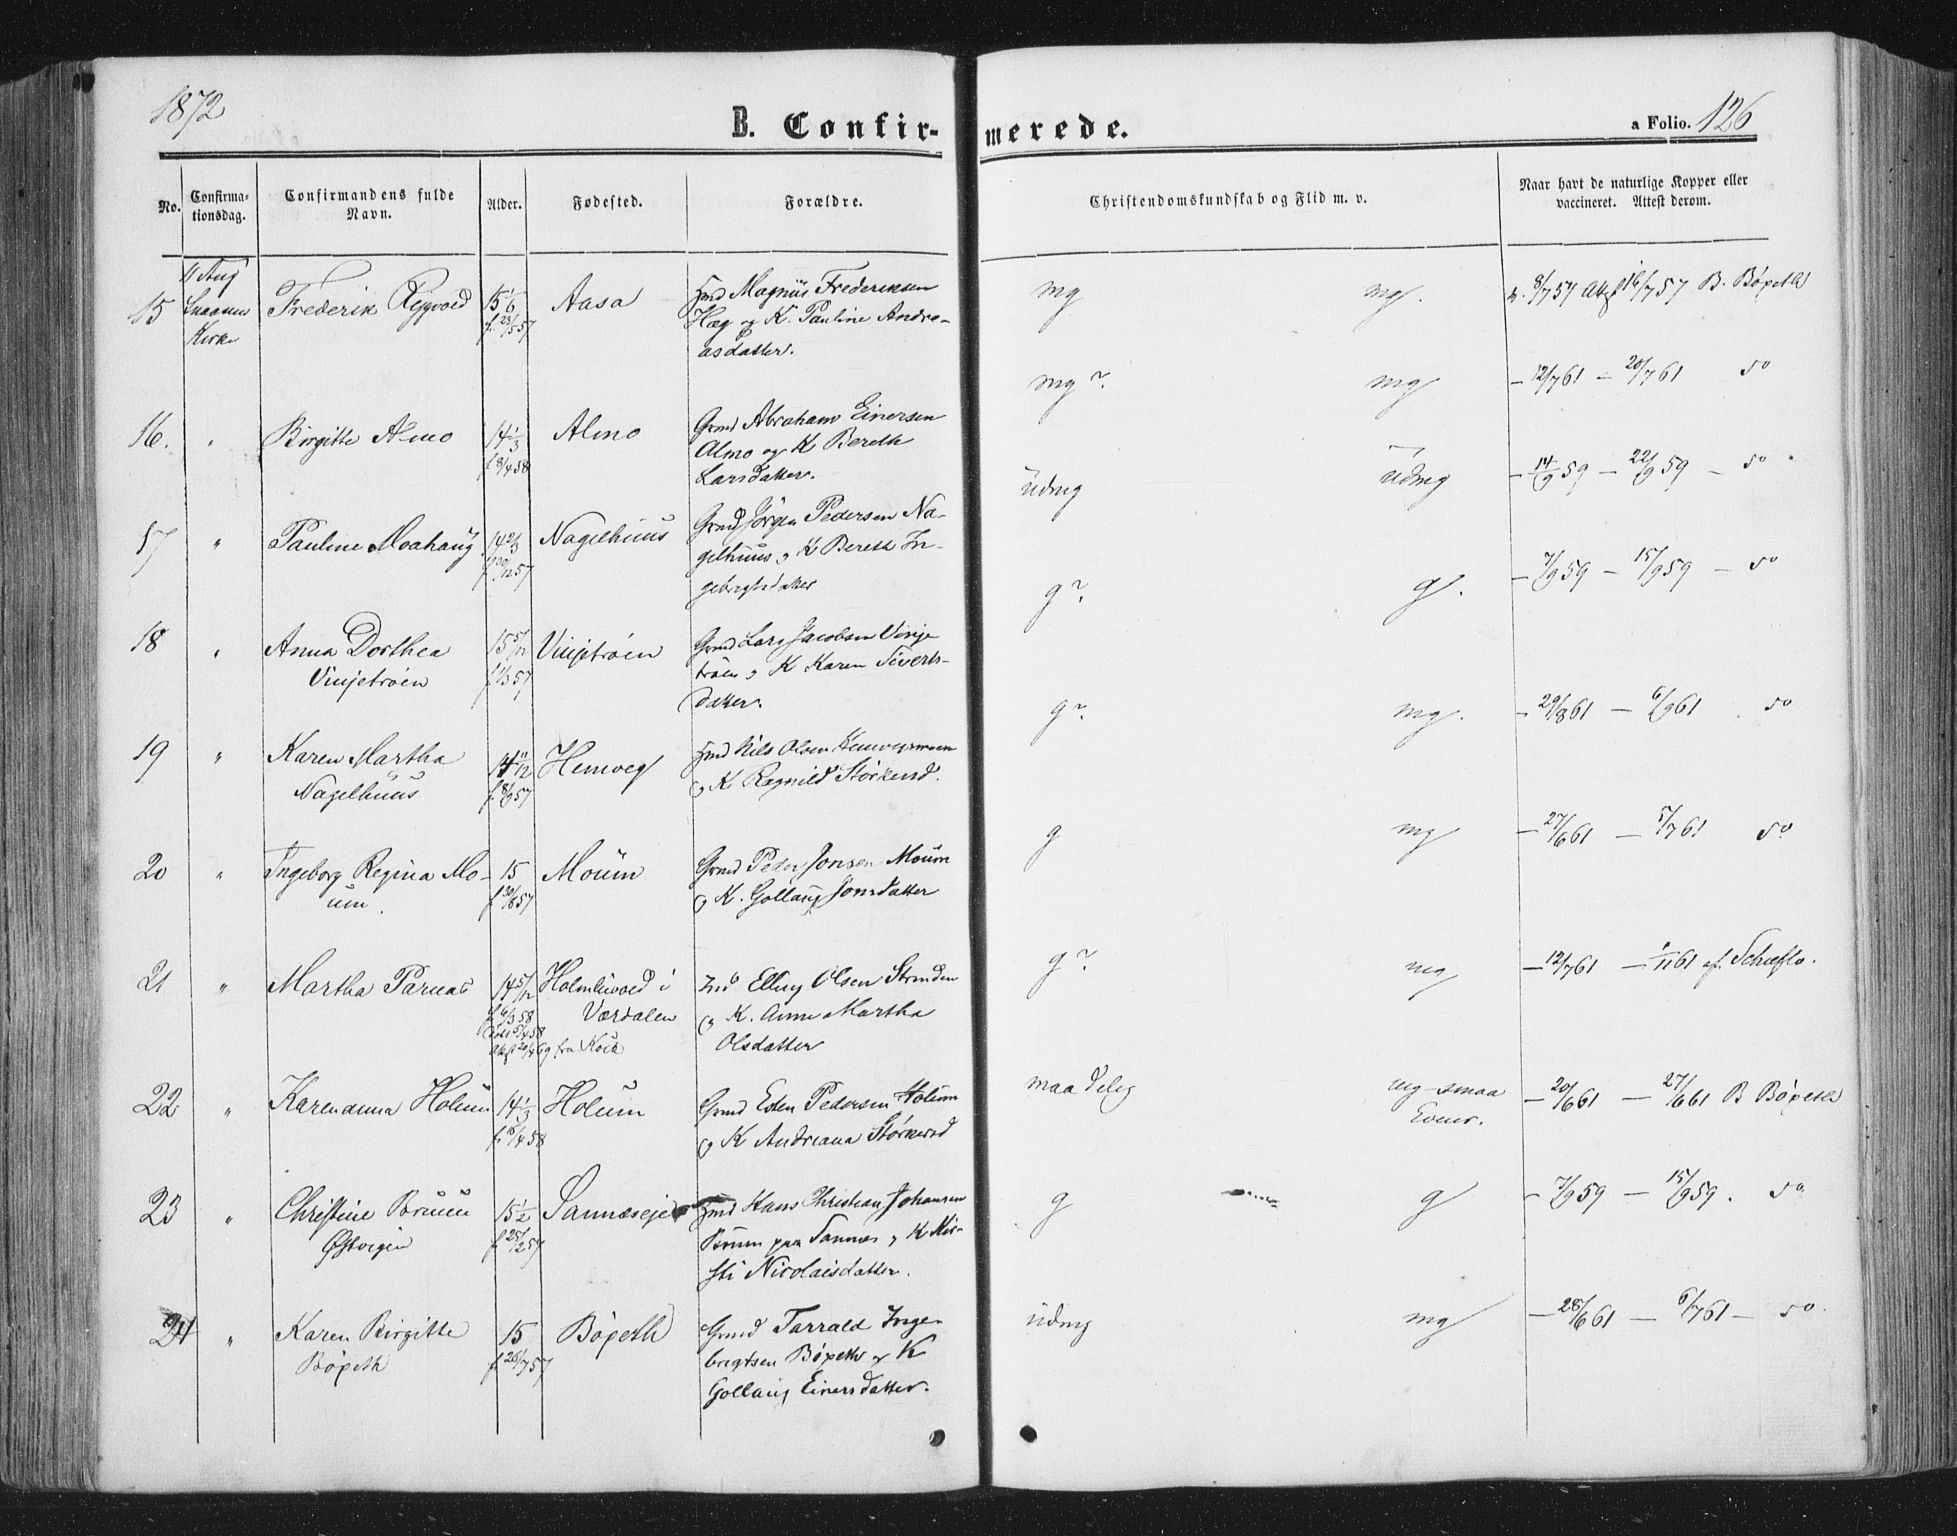 1872
B. Confir-
merede.
a Folio. 126
No.
Confirma-
tionsdag.
Confirmandens fulde
Navn.
Alder.
Fødested.
Forældre.
Christendomskundskab og Flid m. v.
Naar havt de naturlige Kopper eller
vaccineret. Attest derom.
15
11 Aug
Kirke
Frederik
15 1/6
f. 23/5 57
Aasa
Magnüs Frederiksen
Hæg og K. Pauline Andre-
asdatter.
mg
mg.
v. 8/7 57 Att 16/7 57 B. Böpeth
16.
Birgitte Almo
14 1/3
f 8/4 58
Almo
Grmd Abraham Einersen
Almo og K Bereth
Larsdatter.
mg ?.
mg
– 12/7 61 – 20/7 61 So
17
"
Pauline Moahaüg
14 2/3
f 30/12 57
Nagelhüüs
Grmd Jörgen Pedersen Na-
gelhüüs og K Bereth In-
gebrigtsdatter
üdmg
üdmg
– 14/9 59 – 22/9 59 – So
18
"
Anna Dorthea
Vinjetröen
15 5/12
f 1/3 57
Vinjetröen
Grmd Lars Jacobsen Vinje
tröen og K Karen Siverts-
datter.
g ?.
g.
– 7/9 59 – 15/9 59 – So
19
"
Karen Martha
Nagelhüüs
14 11/12
f. 8/9 57
Hemveg
Nils Olsen
og K Ragnild Störkersd.
g ?.
mg.
– 29/8 61 – 6/9 61 So
20
"
Ingeborg Regina Mo-
üm.
15
f 30/6 57
Moüm
Grmd Peder Jonsen Moüm
og K. Gollaug Jonsdatter
g
mg
– 27/6 61 – 5/7 61 So
21
"
Martha Parnas
14 5/12
f 6/3 58
döbt 5/4 58
Att 20/4 69 fra Kock
Holmlivold i
Værdalen
Ind Elling Olsen Stranden
og K. Anne Martha
Olsdatter
g ?.
mg
– 12/7 61 – 1/11 61 af Schieflo.
22
"
Karenanna Holüm
14 1/3
f. 16/4 58
Holüm
Grmd Esten Pedersen Holüm
og K Andriana Störkersd
maadelig
mg – smaa
Evner.
– 20/6 61 – 27/6 61 B Böpeth
23
"
Christine Brüün
Östvigen
15 1/2
f 25/2 57
Sannæseje
Hans Christian Johansen
Brüün paa Sannæs og K Kir-
sti Nicolaisdatter.
g
g
– 7/9 59 – 15/9 59. So
24
"
Karen Birgitte
Böpeth
15
f. 26/7 57
Böpeth
Grmd Tarrald Inge-
brigtsen Böpeth og K
Gollaug Einersdatter.
üdmg
mg
– 28/6 61 – 6/7 61 – So.